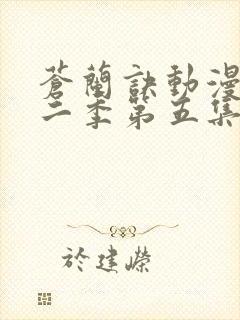 蒼蘭訣動漫
二季第五集
於建嶸